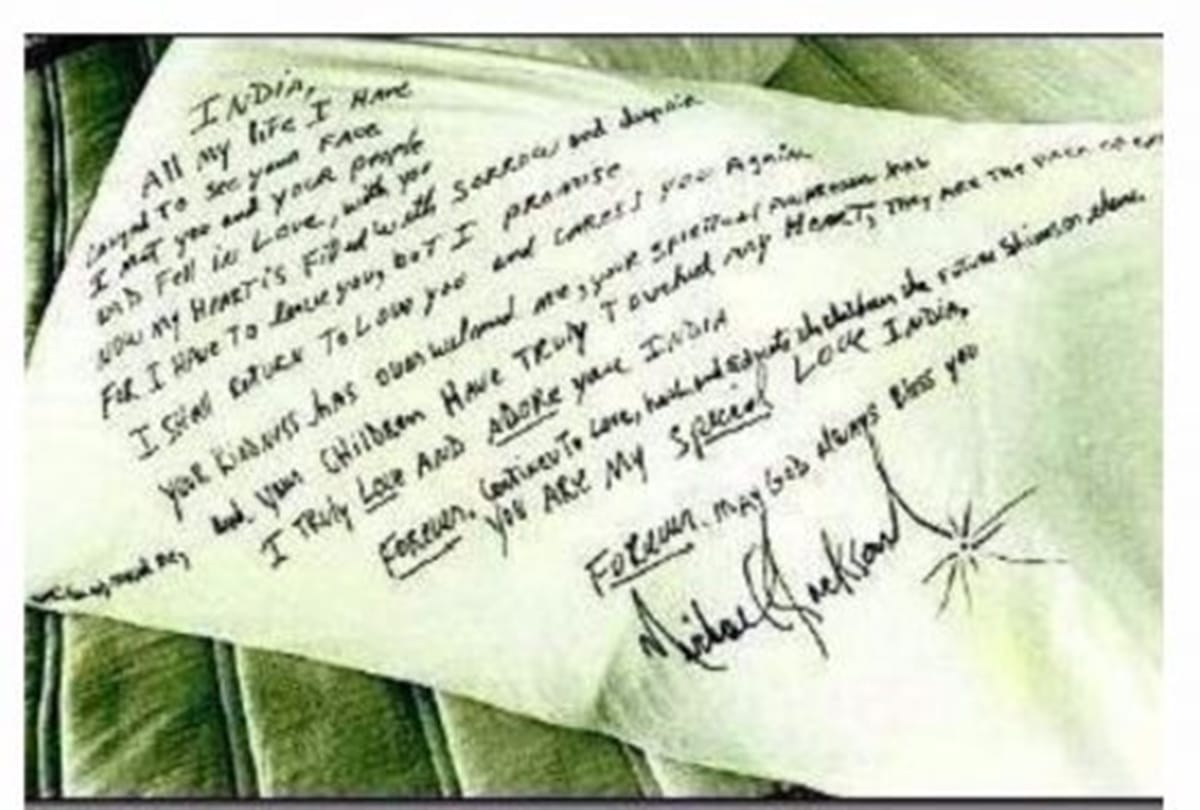 INDIA,
All my life I HAVE
longed TO see your FACE
I met you and YOUR people
and Fell in Love, with you
NOW MY HEART is Filled with SORROW and dispair
FOR I HAVE TO leave you, BUT I promise
I SHALL RETURN TO Love you and caress you Again.
YOUR KINDNESS has overwelmed me, your spiritual awareness has
and your CHILDREN HAVE TRULY Touched my HEART, THEY ARE THE FACE OF
I TRULY Love AND ADORE you INDIA
FOREVER. Continue TO Love, heal and educate the children the future Shines on them.
YOU ARE MY Special LOVE INDIA,
FOREVER. MAY GOD Always Bless you
Michael Jackson